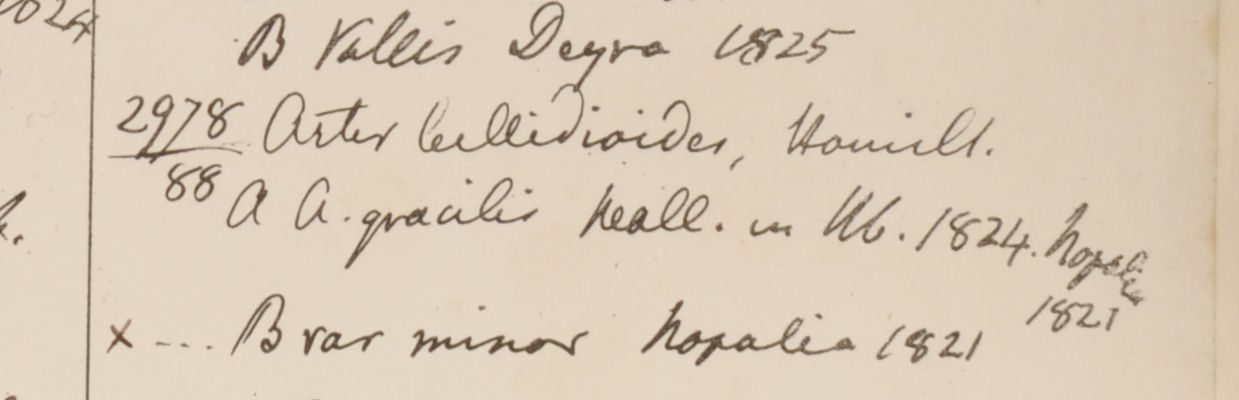 1824
B Vallis Deyra 1825
2978/88 Aster bellidioides, Hamilt.
A A. gracilis Wall. in Hb. 1824. Napalia 1821
x ... B var minor Napalia 1821